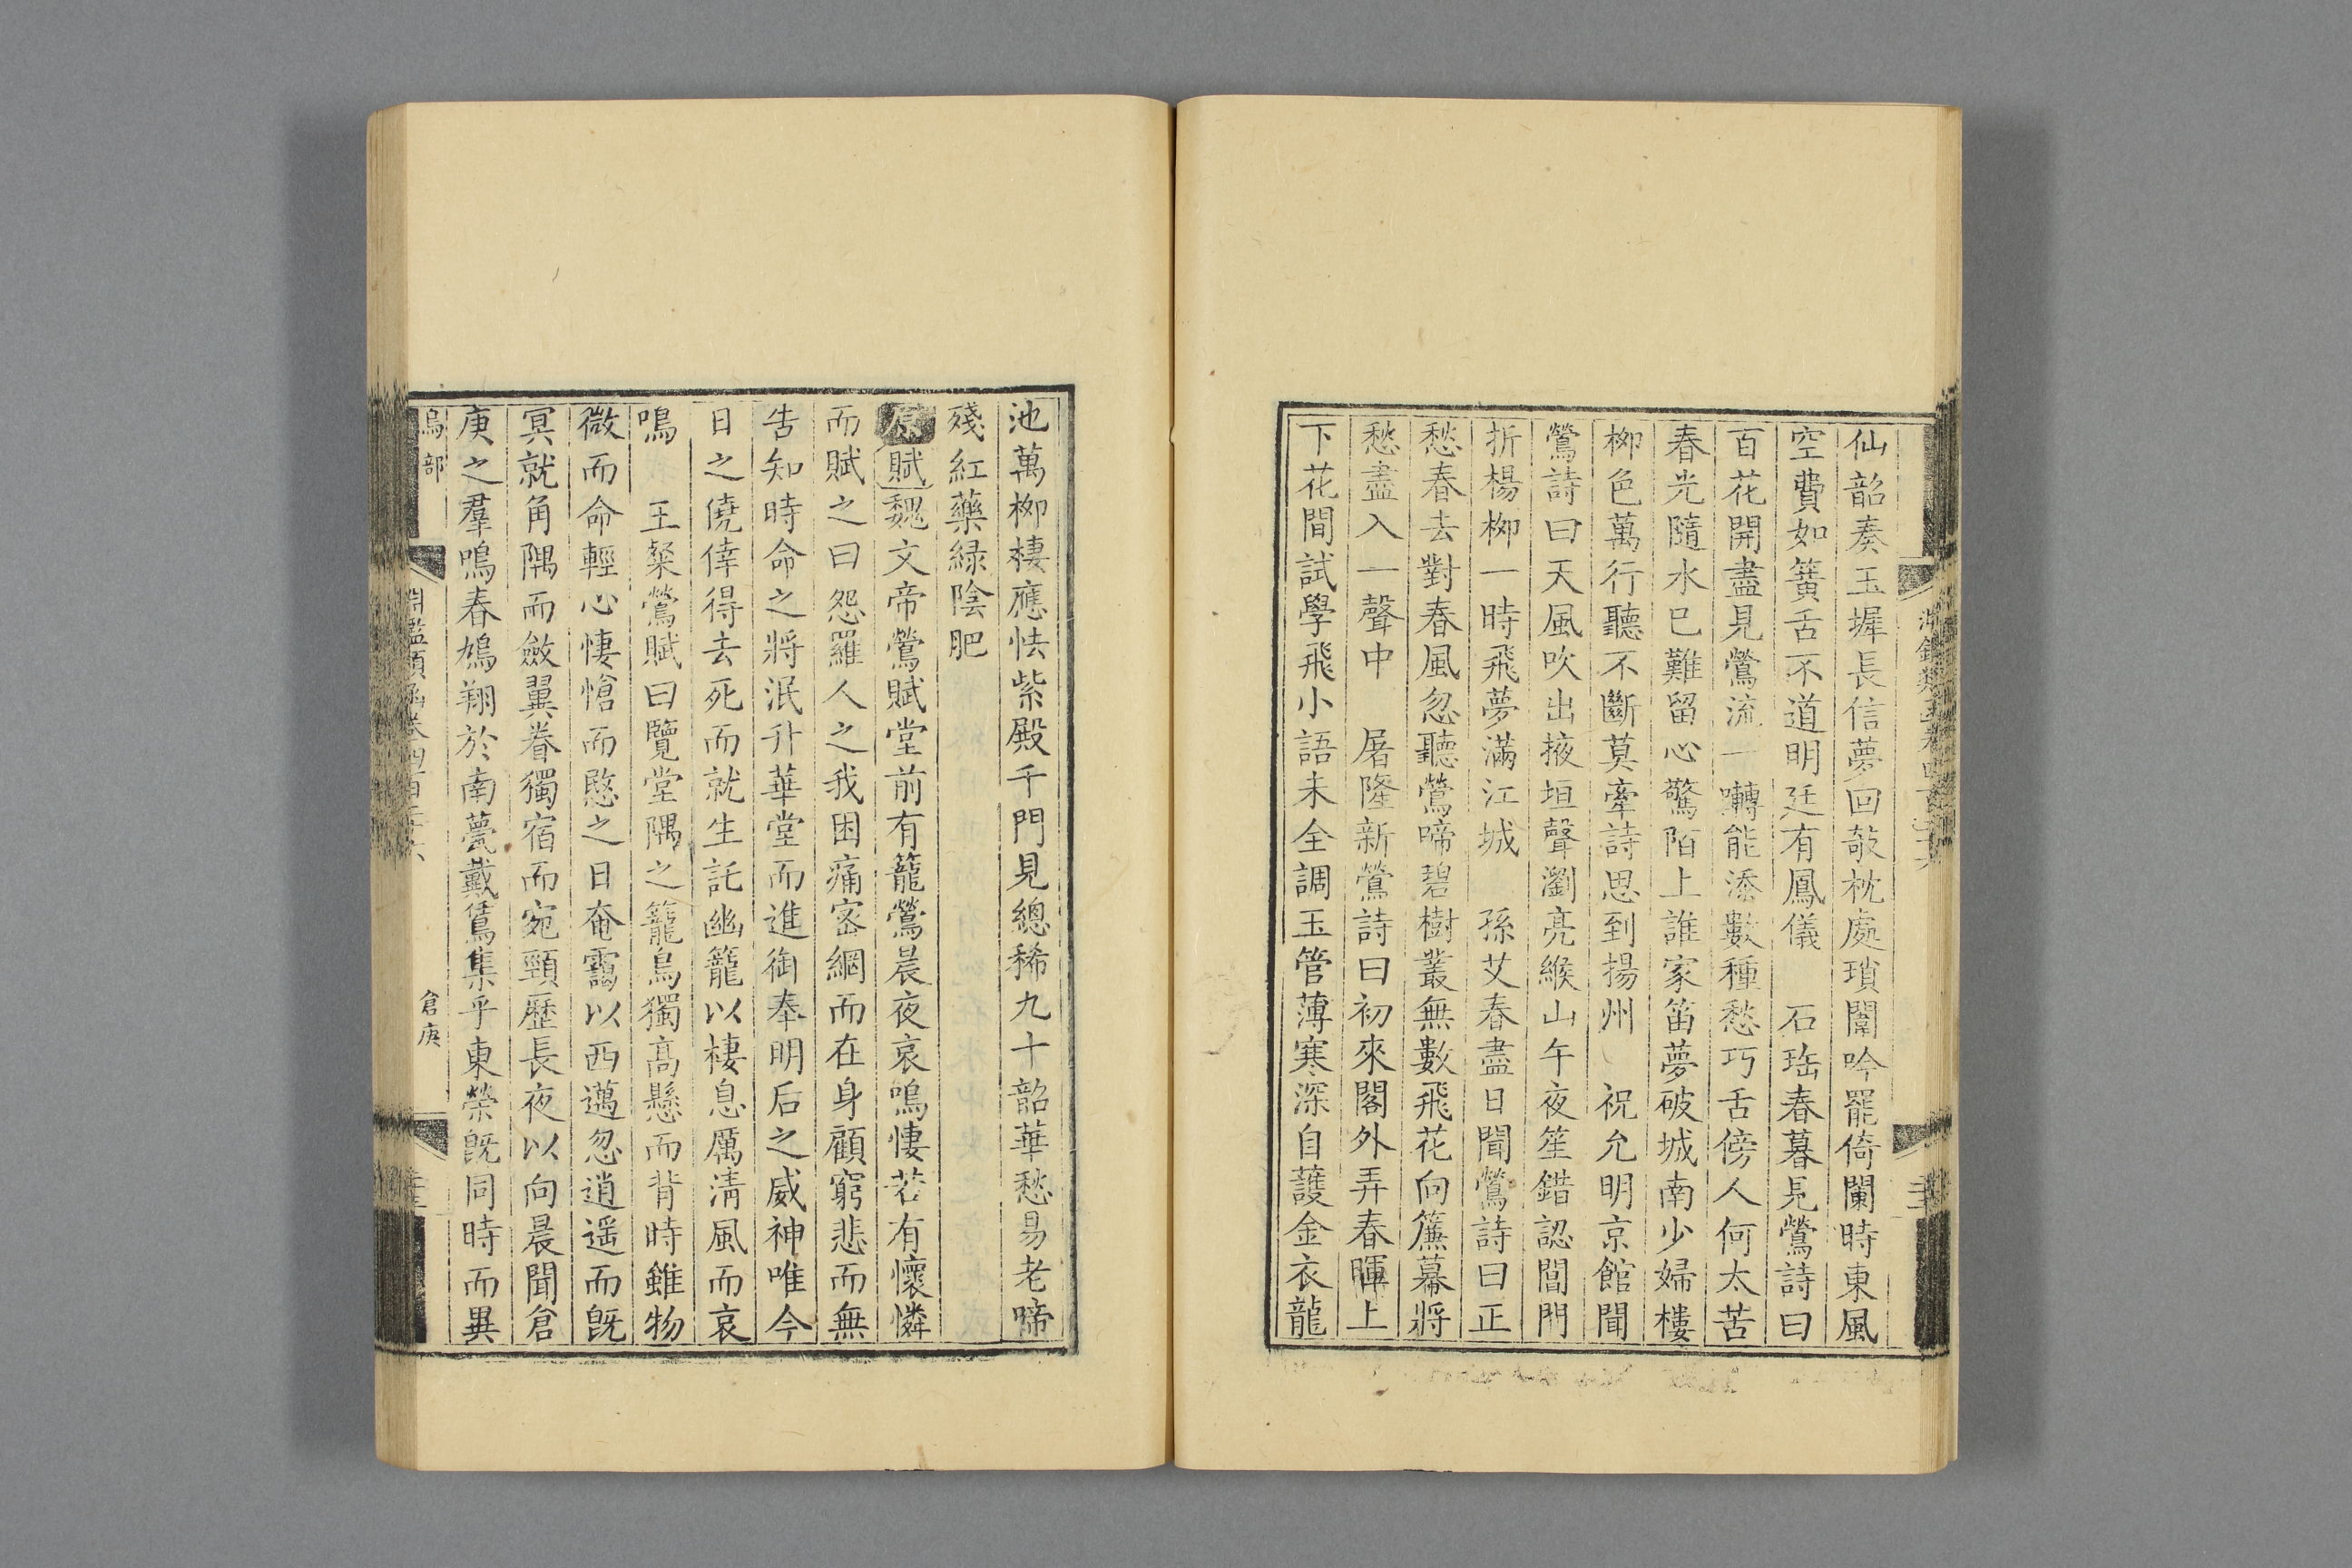 仙韶奏玉墀長信夢回敧枕處瑣闈吟罷倚闌時東風
空費如簧舌不道明廷有鳳儀　石珤春暮見鶯詩曰
百花開盡見鶯流一囀能添數種愁巧舌傍人何太苦
春光隨水已難留心驚陌上誰家笛夢破城南少婦樓
栁色萬行聽不斷莫牽詩思到揚州　祝允明京館聞
鶯詩曰天風吹出掖垣聲瀏亮緱山午夜笙錯認閶門
折楊栁一時飛夢滿江城　孫艾春盡日聞鶯詩曰正
愁春去對春風忽聽鶯啼碧樹叢無數飛花向簾幕將
愁盡入一聲中　屠隆新鶯詩曰初來閣外弄春暉上
下花間試學飛小語未全調玉管薄寒深自護金衣龍
池萬栁棲應怯紫殿千門見總稀九十韶華愁易老啼
殘紅藥緑陰肥
原賦魏文帝鶯賦堂前有籠鶯晨夜哀鳴悽若有懷憐
而賦之曰怨羅人之我困痛宻網而在身顧窮悲而無
告知時命之將泯升華堂而進御奉明后之威神唯今
日之僥倖得去死而就生託幽籠以棲息厲清風而哀
鳴　王粲鶯賦曰覽堂隅之籠鳥獨高懸而背時雖物
微而命輕心悽愴而愍之日奄靄以西邁忽逍遥而旣
冥就角隅而斂翼眷獨宿而宛頸歷長夜以向晨聞倉
庚之羣鳴春鳩翔於南甍戴鵀集乎東榮旣同時而異
鳥部
淵鑑類函卷四百二十六
倉庚